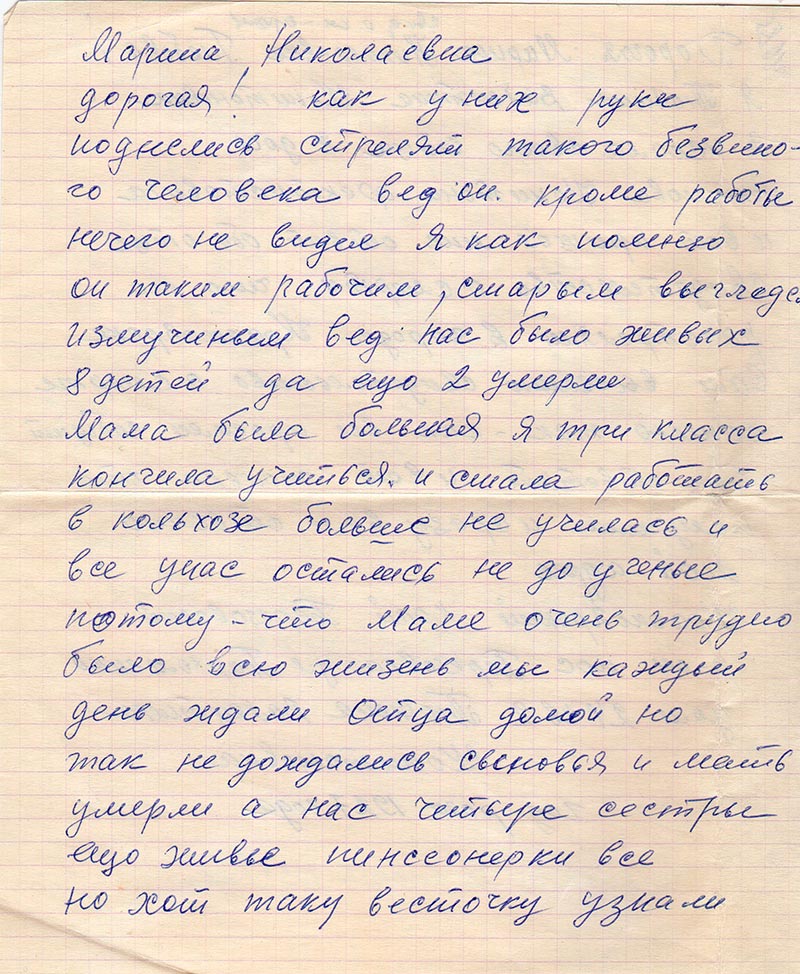 Марина Николаевна
дорогая! как у них руки
поднелись стрелят такого безвино-
го человека вед он. кроме работы
нечего не видел я как помню
он таким рабочим, старым выгледел
измучиным вед нас было живых
8 детей да ящо 2 умерли
Мама была больная я три класса
кончила учиться. и стала работать
в кольхозе больше не училась и
все унас остались не до ученые
потому-что Маме очень трудно
было всю жизень мы каждый
день ждали Отца домой но
так не дождались сыновья и мать
умерли а нас четыре сестры
ящо живые пинссонерки все
но хот таку весточку узнали